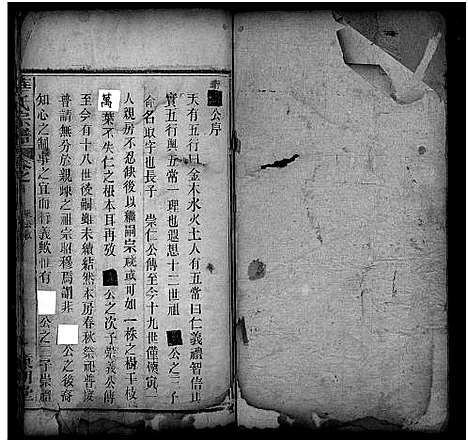 公序
天有五行曰金木水火土人有五常曰仁義禮智信其
實五行與五常一理也遐想十二世祖 公之三子
命名取字也長子 崇仁公傳至今十九世僅傾寅一
人親房不忍缺後以繼嗣宗祧或可如一株之樹千枝
萬葉不失仁之根本耳再攷 公之次子崇義公傳
至今有十八世後嗣雖未續結然本房春秋祭祖普接
普請無分於親疎之祖宗昭穆焉謂非 公之後裔
知心之制事之宜而行義歟惟有 公之三子崇禮
氏宗譜